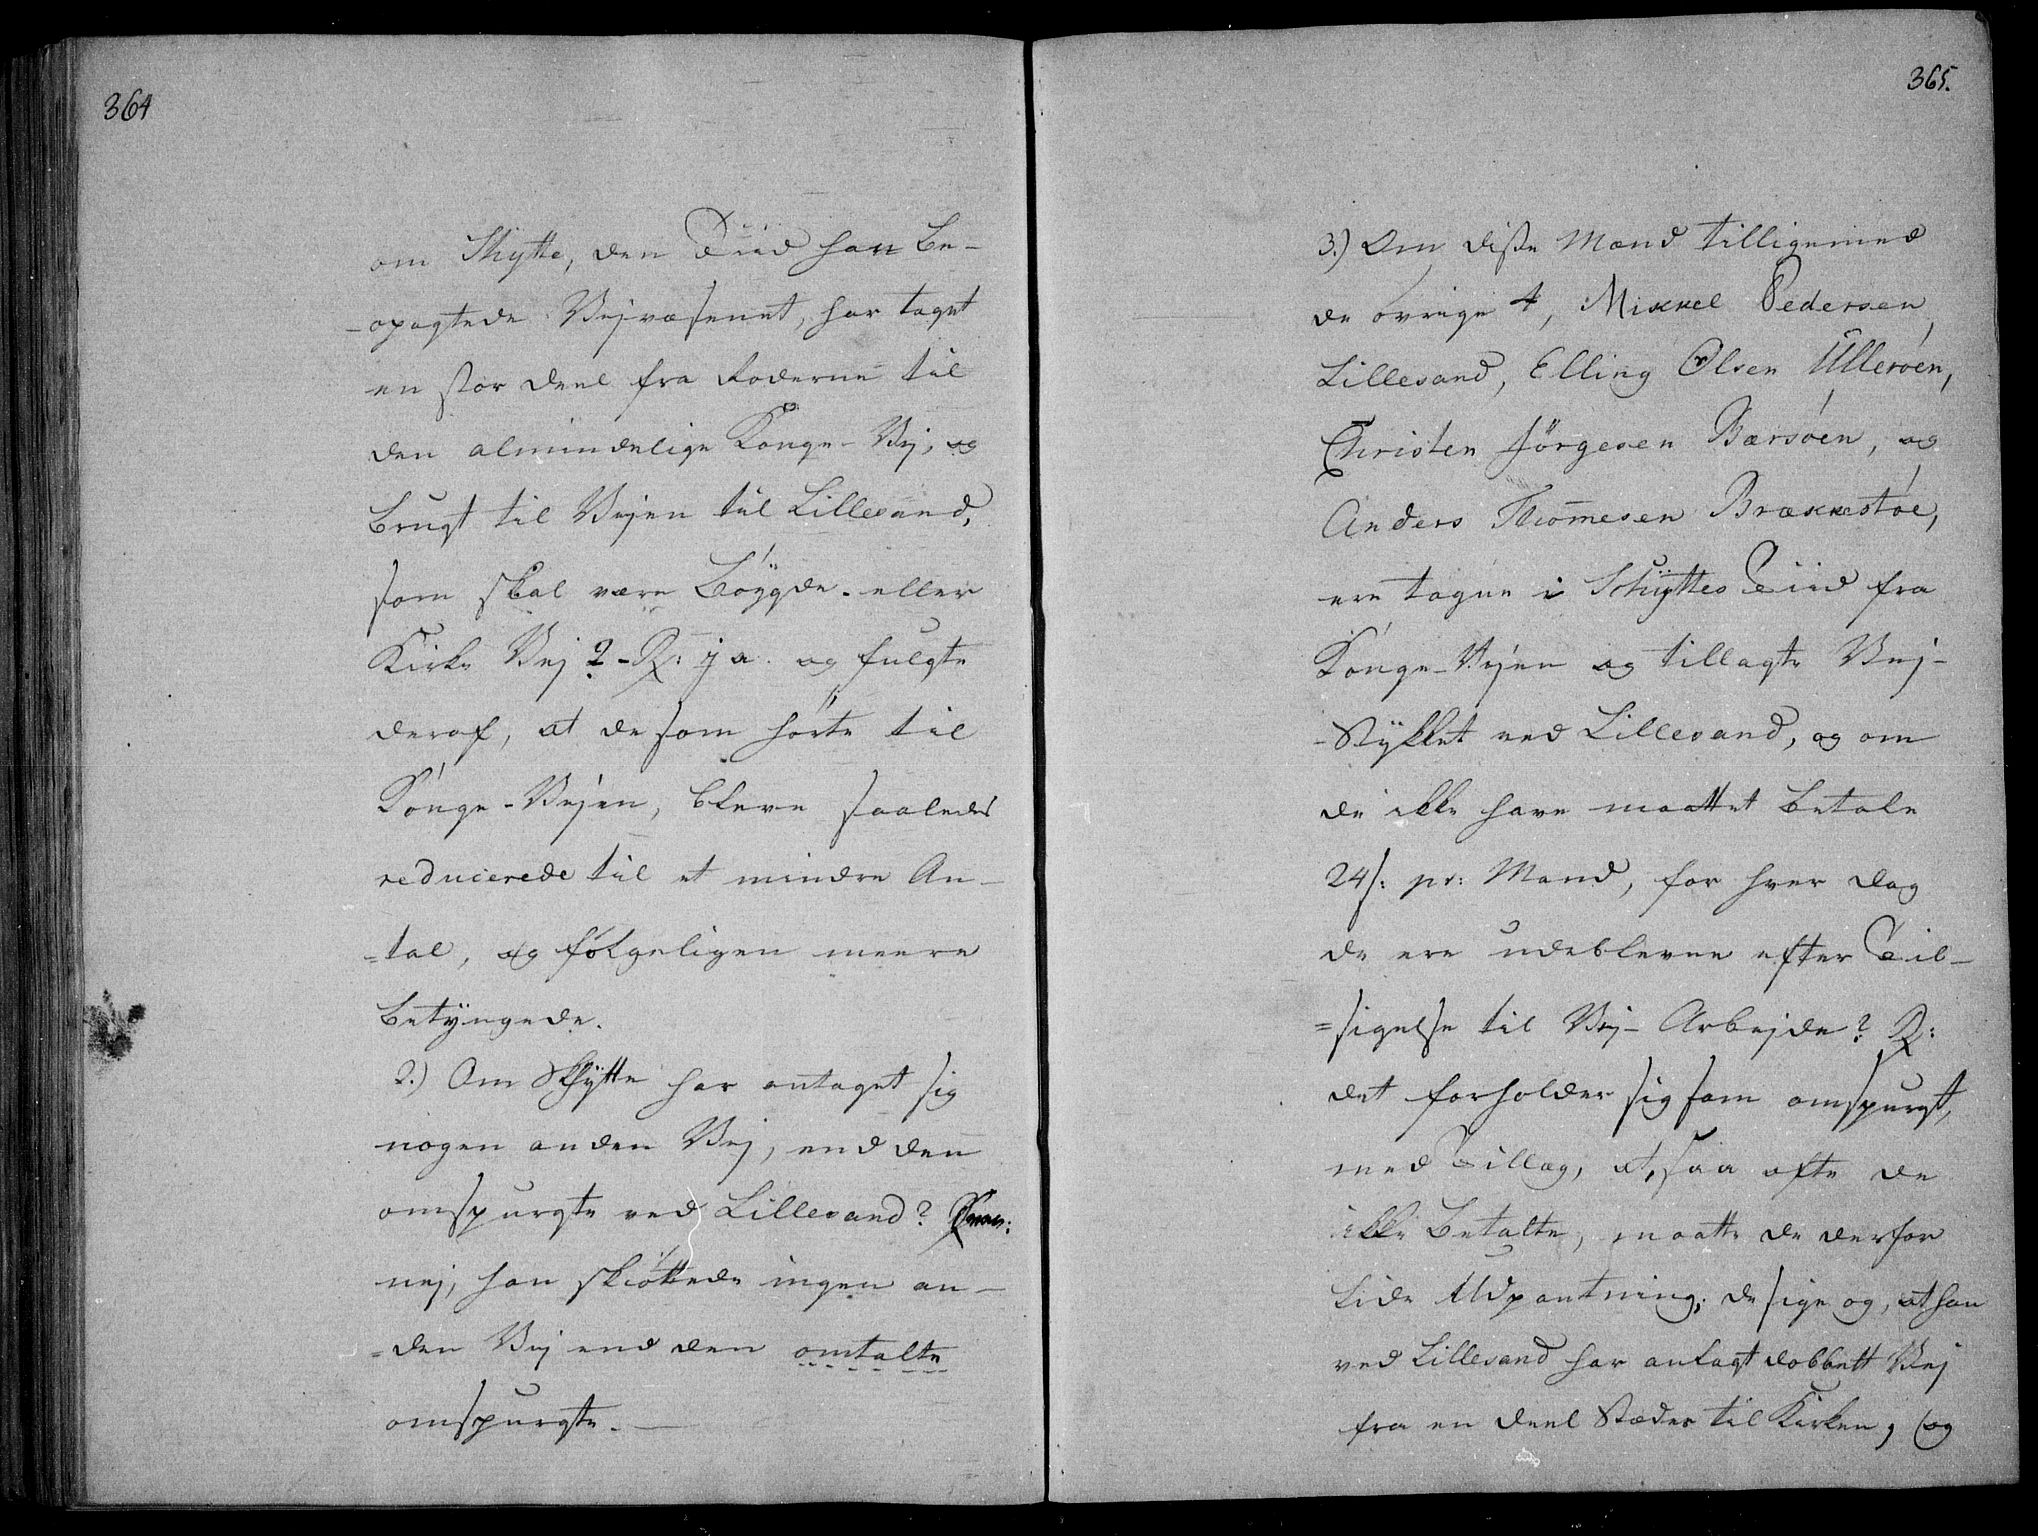 364
om Skytte, den Tiid han be-
-opagtede Vejvæsenet, har taget
en stor deel fra Roderne til
den almindelige Konge-Vej, og
brugt til Vejen til Lillesand,
som skal være Bøygde- eller
Kirke Vej? - R: ja. og fulgte
deraf, at de som hørte til
Konge-Vejen, bleve saaledes
reducerede til et mindre An-
=tal, og følgeligen meere
betyngede.
2.) Om Skytte har antaget sig
nogen anden Vej, end den
omspurgte ved Lillesand?
nej, han skiøttede ingen an-
=den Vej end den omtalte
omspurgte. —
365.
3.) Om disse Mænd tilligemed
de øvrige 4, Mikkel Pedersen,
Lillesand, Elling Olsen Ulleröen,
Christen Jörgesen Bærsöen, og
Anders Thom̄esen Brækkestöe,
ere tagne i Schyttes Tiid fra
Konge-Vejen og tillagte Vej-
-Stykket ved Lillesand, og om
de ikke have maattet betale
24 s: pr: Mand, for hver dag
de ere udeblevne efter Til-
=sigelse til Vej-Arbejde? R:
det forholder sig som omspurgt,
med Tillæg, at, saa ofte de
ikke betalte, maatte de derfor
lide Udpantning; de sige og, at han
ved Lillesand har anlagt dobbelt Vej
fra en deel Stæder til Kirken, (og